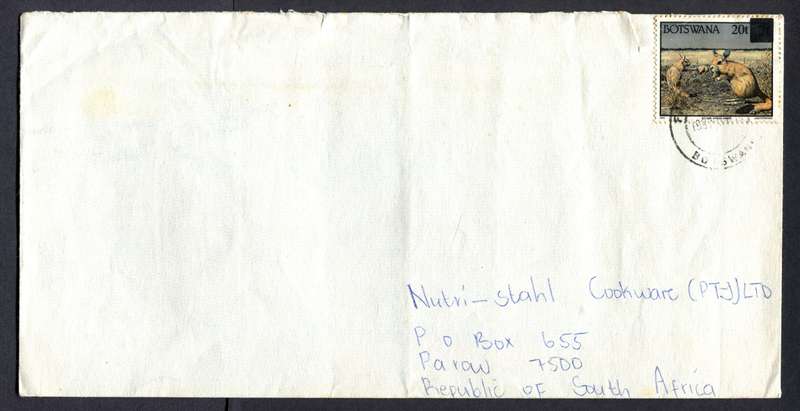 BOTSWANA 20t
BOTSWAN
Nutri-stahl Cookware (PTY) LTD
P O Box 655
Parow 7500
Republic of South Africa